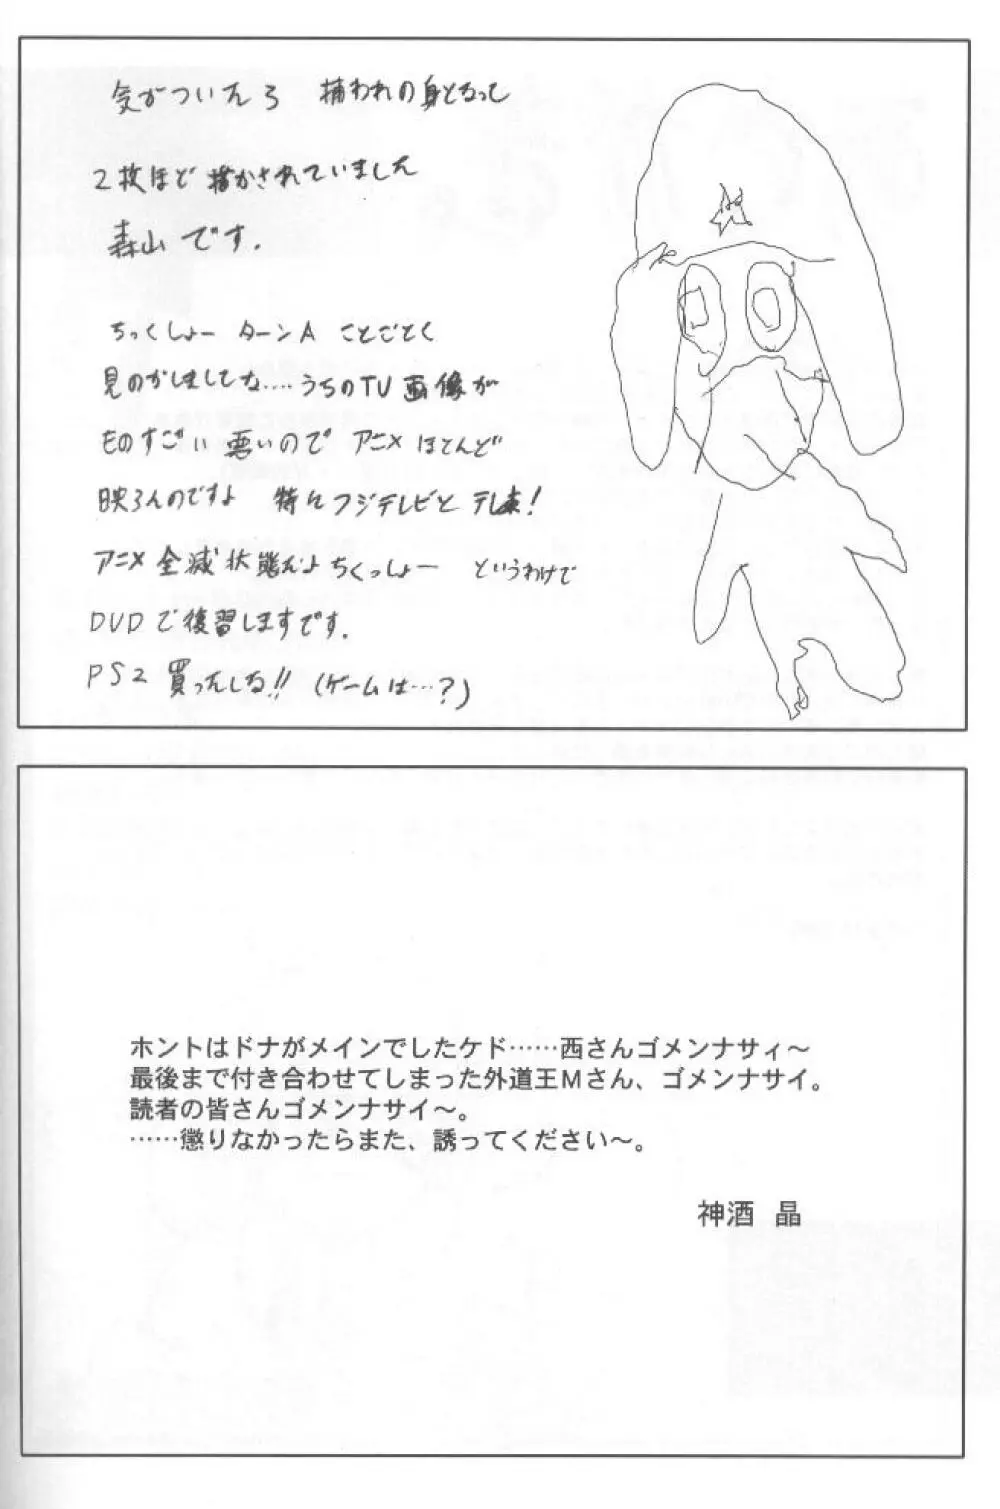 気がついたら 捕われの身となって
2枚ほど描かされていました
森山です.
ちっくしょー ターンA ことごとく
見のがしましてな....うちのTV画像が
ものすごい悪いので アニメほとんど
映らんのですよ 特にフジテレビとテレ東!
アニメ全滅状態だよちくっしょー というわけで
DVDで復習しますです.
PS2買ったしな!! (ゲームは…?)
ホントはドナがメインでしたケド……西さんゴメンナサィ〜
最後まで付き合わせてしまった外道王Mさん、ゴメンナサイ。
読者の皆さんゴメンナサイ〜。
……懲りなかったらまた、誘ってください〜。
神酒 晶